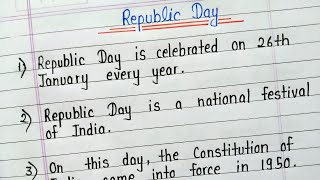 Republic Day
1) Republic Day is celebrated on 26th
January every year.
2) Republic Day is a national festival
of India.
3) On this day, the Constitution of
India came into force in 1950.